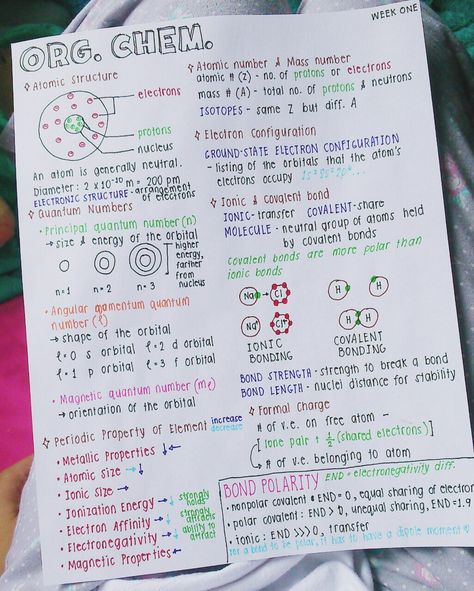 WEEK ONE
ORG. CHEM.
Atomic Structure
electrons
protons
nucleus
An atom is generally neutral.
Diameter: 2 x 10⁻¹⁰ m = 200 pm
ELECTRONIC STRUCTURE - arrangement
of electrons
Quantum Numbers
Principal quantum number (n)
→ size & energy of the orbital
higher
energy,
farther
from
nucleus
n=1 n=2 n=3
Angular momentum quantum
number (ℓ)
→ shape of the orbital
ℓ=0 s orbital ℓ=2 d orbital
ℓ=1 p orbital ℓ=3 f orbital
Magnetic quantum number (mℓ)
→ orientation of the orbital
Periodic Property of Element increase
decrease
• Metallic Properties ↓←
• Atomic Size →↓
• Ionic size → ↓
• Ionization Energy →↓ strongly
holds
• Electron Affinity →↓ strongly
attracts
• Electronegativity →↓ ability to
attract
• Magnetic Properties ←
Atomic number & Mass number
atomic # (Z) - no. of protons or electrons
mass # (A) - total no. of protons & neutrons
ISOTOPES - same Z but diff. A
Electron Configuration
GROUND-STATE ELECTRON CONFIGURATION
- listing of the orbitals that the atom's
electrons occupy 1s² 2s² 2p⁶...
Ionic & covalent bond
IONIC- transfer COVALENT- share
MOLECULE - neutral group of atoms held
by covalent bonds
covalent bonds are more polar than
ionic bonds
Na → Cl H H
Na⁺ Cl H H
IONIC
BONDING
COVALENT
BONDING
BOND STRENGTH - strength to break a bond
BOND LENGTH - nuclei distance for stability
Formal Charge
# of v.e. on free atom -
[lone pair + ½ (shared electrons)]
→ # of v.e. belonging to atom
BOND POLARITY END = electronegativity diff.
• nonpolar covalent: END = 0, equal sharing of electron
• polar covalent: END > 0, unequal sharing, END = 1.9
• ionic: END >>> 0, transfer
for a bond to be polar, it has to have a dipole moment